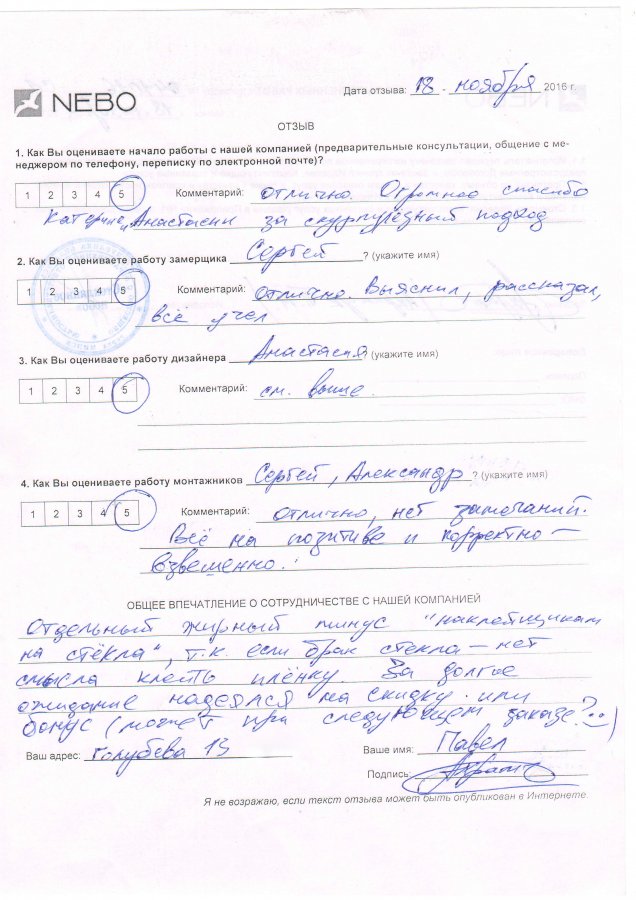 NEBO
Дата отзыва: 18 - ноября 2016 г.
ОТЗЫВ
1. Как Вы оцениваете начало работы с нашей компанией (предварительные консультации, общение с ме-
неджером по телефону, переписку по электронной почте)?
1 2 3 4 5 Комментарий: отлично. Огромное спасибо
Катерине и Анастасии за скурпулёзный подход
2. Как Вы оцениваете работу замерщика Сергей ? (укажите имя)
1 2 3 4 5 Комментарий: отлично. Выяснил, рассказал,
всё учел
3. Как Вы оцениваете работу дизайнера Анастасия? (укажите имя)
1 2 3 4 5 Комментарий: см. выше.
4. Как Вы оцениваете работу монтажников Сергей, Александр ? (укажите имя)
1 2 3 4 5 Комментарий: отлично, нет замечаний.
Всё на позитиве и корректно —
взвешенно.
ОБЩЕЕ ВПЕЧАТЛЕНИЕ О СОТРУДНИЧЕСТВЕ С НАШЕЙ КОМПАНИЕЙ
Отдельный жирный минус "наклейщикам
на стёкла", т.к. если брак стекла — нет
смысла клеить плёнку. За долгое
ожидание надеялся на скидку или
бонус (может при следующем заказе? :-)
Ваш адрес: Голубева 13 Ваше имя: Павел
Подпись
Я не возражаю, если текст отзыва может быть опубликован в Интернете.